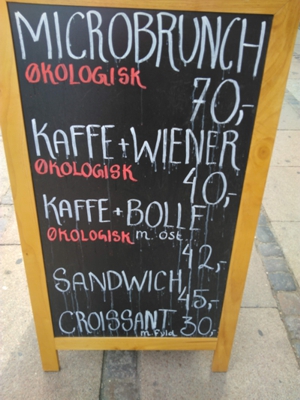 MICROBRUNCH
ØKOLOGISK
70,-
KAFFE + WIENER
ØKOLOGISK
40,-
KAFFE + BOLLE
ØKOLOGISK m. ost
42,-
SANDWICH
45,-
CROISSANT 30,-
m. Fyld